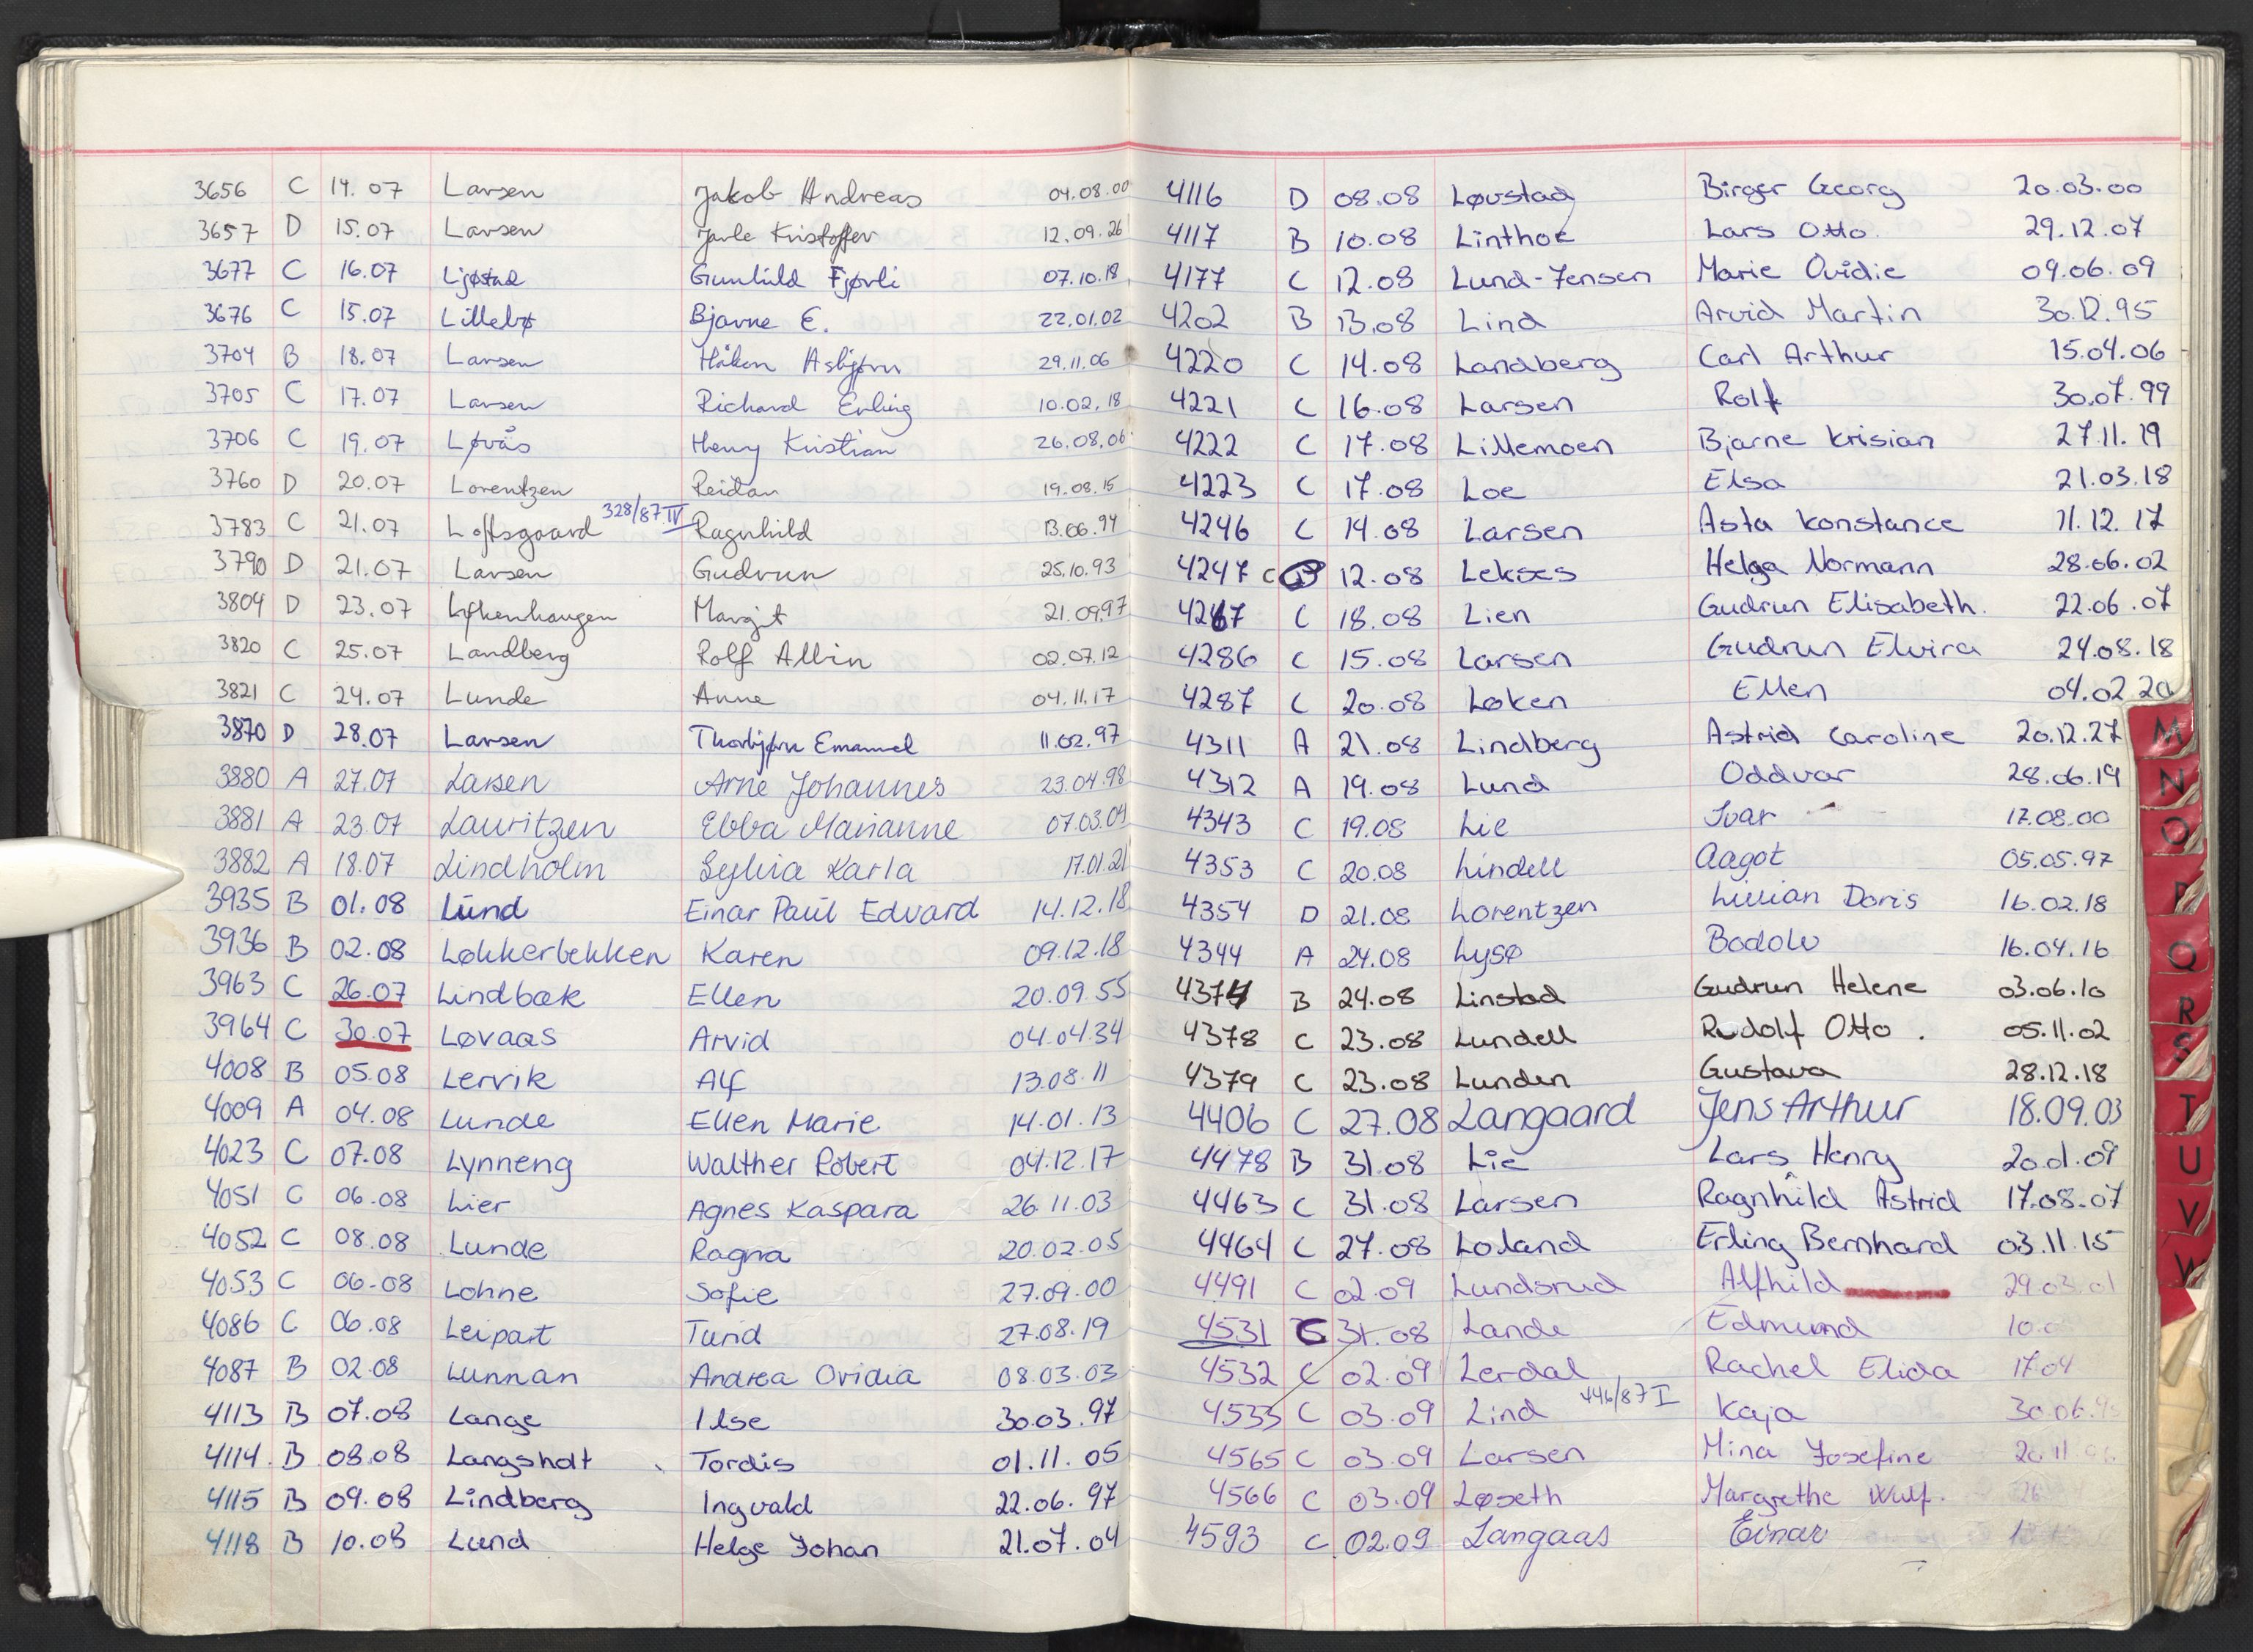 3656 C 14.07 Larsen Jakob Andreas 04.08.00
3657 D 15.07 Larsen Jarle Kristoffer 12.09.26
3677 C 16.07 Ljøstad Gunhild Fjørli 07.10.18
3676 C 15.07 Lillebø Bjarne E. 22.01.02
3704 B 18.07 Larsen Håkon Asbjørn 29.11.06
3705 C 17.07 Larsen Richard Erling 10.02.18
3706 C 19.07 Løvås Henry Kristian 26.08.06
3760 D 20.07 Lorentzen Reidar 19.08.15
3783 C 21.07 Loftsgaard 328/87 IV Ragnhild 13.06.94
3790 D 21.07 Larsen Gudrun 25.10.93
3804 D 23.07 Løkenhaugen Margit 21.09.97
3820 C 25.07 Landberg Rolf Albin 02.07.12
3821 C 24.07 Lunde Anne 04.11.17
3870 D 28.07 Larsen Thorbjørn Emanuel 11.02.97
3880 A 27.07 Larsen Arne Johannes 23.04.98
3881 A 23.07 Lauritzen Ebba Marianne 07.03.04
3882 A 18.07 Lindholm Sylvia Karla 17.01.21
3935 B 01.08 Lund Einar Paul Edvard 14.12.18
3936 B 02.08 Løkkerbekken Karen 09.12.18
3963 C 26.07 Lindbæk Ellen 20.09.55
3964 C 30.07 Løvaas Arvid 04.04.34
4008 B 05.08 Lervik Alf 13.08.11
4009 A 04.08 Lunde Ellen Marie 14.01.13
4023 C 07.08 Lynneng Walther Robert 04.12.17
4051 C 06.08 Lier Agnes Kaspara 26.11.03
4052 C 08.08 Lunde Ragna 20.02.05
4053 C 06-08 Lohne Sofie 27.09.00
4086 C 06.08 Leipart Turid 27.08.19
4087 B 02.08 Lunnan Andrea Ovidia 08.03.03
4113 B 07.08 Lange Ilse 30.03.97
4114 B 08.08 Langsholt Tordis 01.11.05
4115 B 09.08 Lindberg Ingvald 22.06.97
4118 B 10.08 Lund Helge Johan 21.07.04
4116 D 08.08 Løvstad Birger Georg 20.03.00
4117 B 10.08 Linthoe Lars Otto 29.12.07
4177 C 12.08 Lund-Jensen Marie Ovidie 09.06.09
4202 B 13.08 Lind Arvid Martin 30.12.95
4220 C 14.08 Landberg Carl Arthur 15.04.06
4221 C 16.08 Larsen Rolf 30.07.99
4222 C 17.08 Lillemoen Bjarne Krisian 27.11.19
4223 C 17.08 Loe Elsa 21.03.18
4246 C 14.08 Larsen Asta Konstance 11.12.17
4247 C 12.08 Lekses Helga Normann 28.06.02
4267 C 18.08 Lien Gudrun Elisabeth. 22.06.07
4286 C 15.08 Larsen Gudrun Elvira 24.08.18
4287 C 20.08 Løken Ellen 04.02.20
4311 A 21.08 Lindberg Astrid Caroline 20.12.27
4312 A 19.08 Lund Oddvar 28.06.19
4343 C 19.08 Lie Ivar 17.08.00
4353 C 20.08 Lindell Aagot 05.05.97
4354 D 21.08 Lorentzen Lillian Doris 16.02.18
4344 A 24.08 Lysø Bodolv 16.04.16
4374 B 24.08 Linstad Gudrun Helene 03.06.10
4378 C 23.08 Lundell Rudolf Otto. 05.11.02
4379 C 23.08 Lunden Gustava 28.12.18
4406 C 27.08 Langaard Jens Arthur 18.09.03
4478 B 31.08 Lie Lars Henry 20.01.09
4463 C 31.08 Larsen Ragnhild Astrid 17.08.07
4464 C 27.08 Loland Erling Bernhard 03.11.15
4491 C 02.09 Lundsrud Alfhild 29.03.01
4531 C 31.08 Lande Edmund 10.0
4532 C 02.09 Lerdal Rachel Elida 17.04
4533 C 03.09 Lind 446/87 I Kaja 30.06.
4565 C 03.09 Larsen Mina Josefine 20.11
4566 C 03.09 Løseth Margrethe Wulf.
4593 C 02.09 Langaas Einar
M
N
O
P
Q
R
S
T
U
V
W